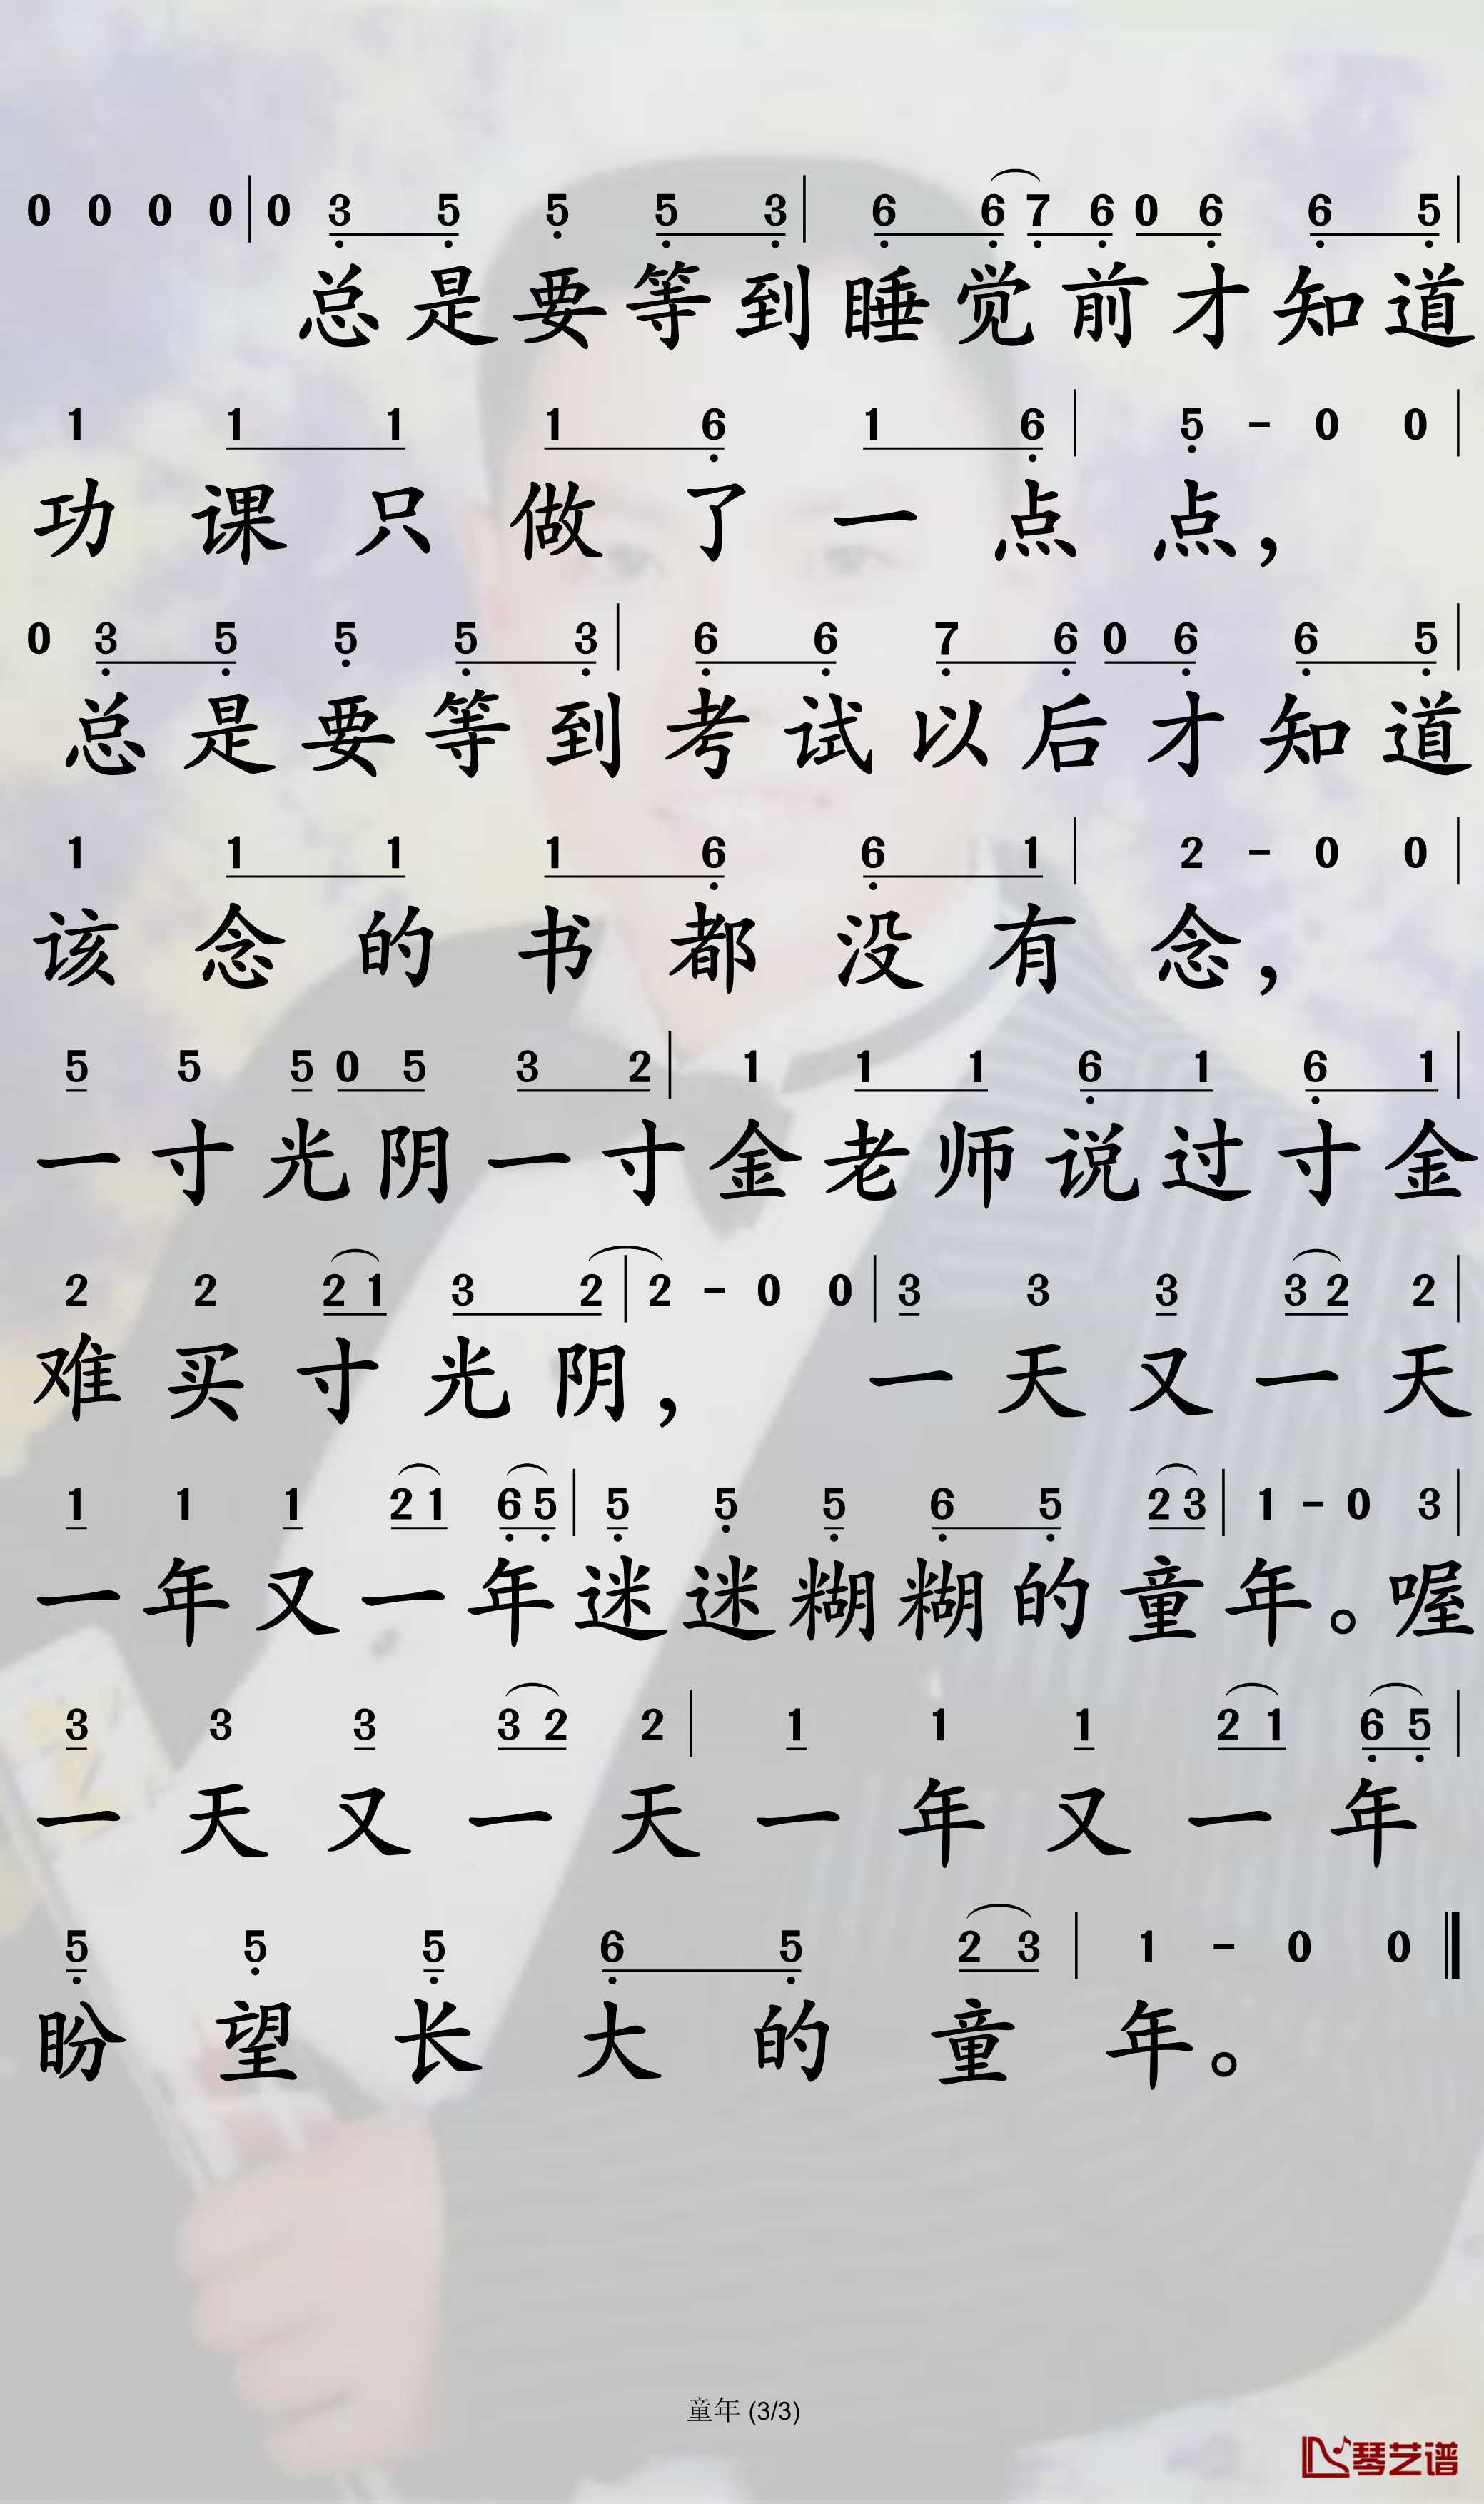 0 0 0 0 | 0 3 5 5 5 3 | 6 6 7 6 0 6 6 5 |
总是要等到睡觉前才知道
1 1 1 1 6 1 6 | 5 - 0 0 |
功课只做了一点点，
0 3 5 5 5 3 | 6 6 7 6 0 6 6 5 |
总是要等到考试以后才知道
1 1 1 1 6 6 1 | 2 - 0 0 |
该念的书都没有念，
5 5 5 0 5 3 2 | 1 1 1 6 1 6 1 |
一寸光阴一寸金老师说过寸金
2 2 2 1 3 2 | 2 - 0 0 | 3 3 3 3 2 2 |
难买寸光阴，一天又一天
1 1 1 2 1 6 5 | 5 5 5 6 5 2 3 | 1 - 0 3 |
一年又一年迷迷糊糊的童年。喔
3 3 3 3 2 2 | 1 1 1 2 1 6 5 |
一天又一天一年又一年
5 5 5 6 5 2 3 | 1 - 0 0 ‖
盼望长大的童年。
童年 (3/3)
琴艺谱